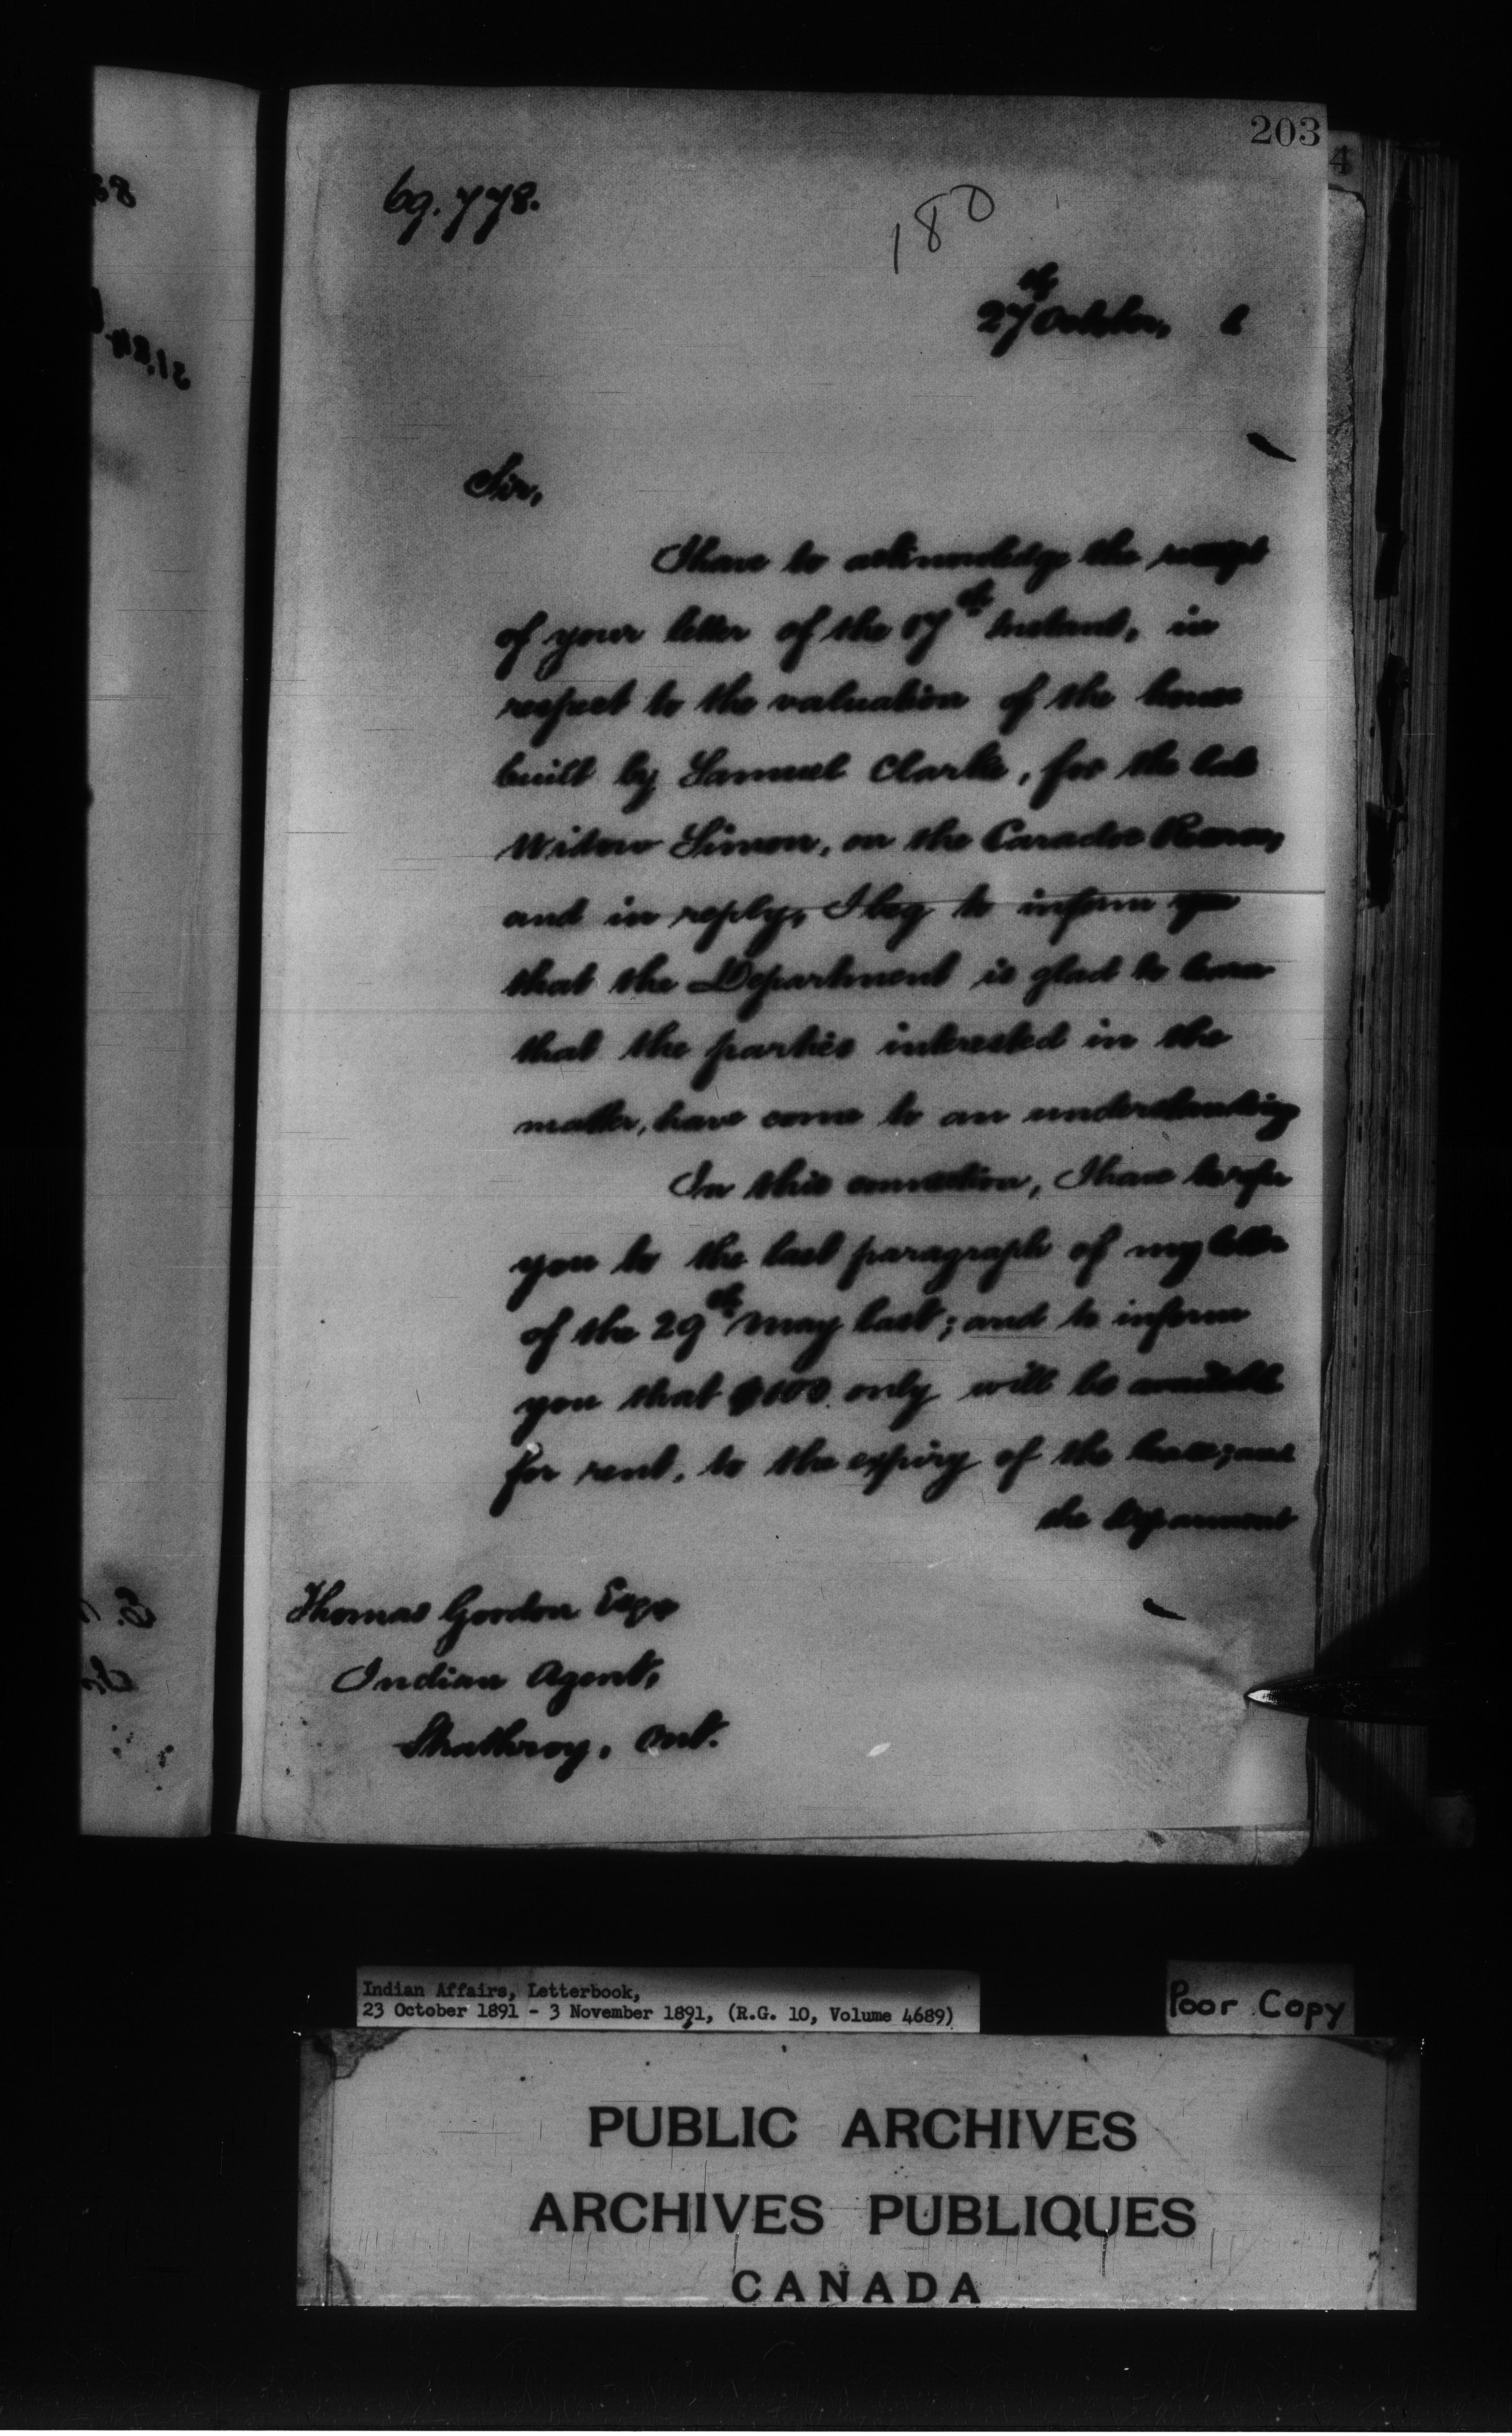 203
4
69.778.
180
27th October,
Sir,
I have to acknowledge the receipt
of your letter of the 17th Instant, in
respect to the valuation of the house
built by Samuel Clarke, for the late
Widow Simon, on the Caradoc Reserve,
and in reply, I beg to inform you
that the Department is glad to learn
that the parties interested in the
matter, have come to an understanding
In this connection, I have to refer
you to the last paragraph of my letter
of the 29th May last; and to inform
you that $100. only will be available
for rent, to the expiry of the lease; and
the Department
Thomas Gordon Esqr
Indian Agent,
Strathroy, Ont.
Indian Affairs, Letterbook,
23 October 1891 - 3 November 1891, (R.G. 10, Volume 4689)
Poor Copy
PUBLIC ARCHIVES
ARCHIVES PUBLIQUES
CANADA